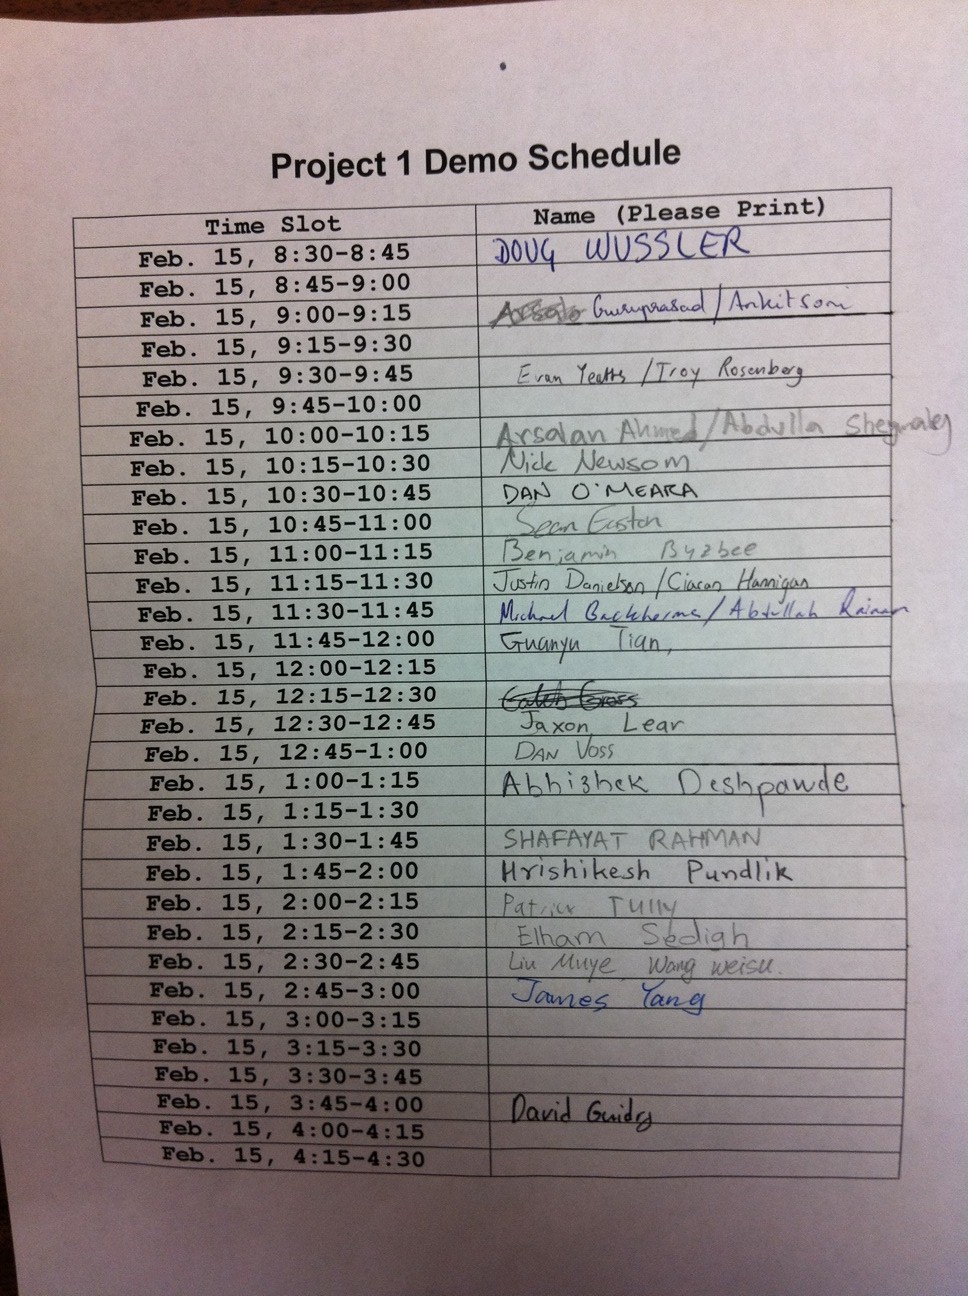 Project 1 Demo Schedule
Time Slot Name (Please Print)
Feb. 15, 8:30-8:45 DOUG WUSSLER
Feb. 15, 8:45-9:00
Feb. 15, 9:00-9:15 Guruprasad/Ankit Soni
Feb. 15, 9:15-9:30
Feb. 15, 9:30-9:45 Evan Yeatts /Troy Rosenberg
Feb. 15, 9:45-10:00
Feb. 15, 10:00-10:15 Arsalan Ahmed/Abdulla
Feb. 15, 10:15-10:30 Nick Newsom
Feb. 15, 10:30-10:45 DAN O'MEARA
Feb. 15, 10:45-11:00 Sean Easton
Feb. 15, 11:00-11:15 Benjamin Byzbee
Feb. 15, 11:15-11:30 Justin Danielson /Ciaran Hannigan
Feb. 15, 11:30-11:45 Michael / Abdullah
Feb. 15, 11:45-12:00 Guanyu Tian,
Feb. 15, 12:00-12:15
Feb. 15, 12:15-12:30 Caleb Gross
Feb. 15, 12:30-12:45 Jaxon Lear
Feb. 15, 12:45-1:00 DAN VOSS
Feb. 15, 1:00-1:15 Abhishek Deshpande
Feb. 15, 1:15-1:30
Feb. 15, 1:30-1:45 SHAFAYAT RAHMAN
Feb. 15, 1:45-2:00 Hrishikesh Pundlik
Feb. 15, 2:00-2:15 Patrick Tully
Feb. 15, 2:15-2:30 Elham Sedigh
Feb. 15, 2:30-2:45 Liu Muye Wang weisu.
Feb. 15, 2:45-3:00 James Yang
Feb. 15, 3:00-3:15
Feb. 15, 3:15-3:30
Feb. 15, 3:30-3:45
Feb. 15, 3:45-4:00 David Guidry
Feb. 15, 4:00-4:15
Feb. 15, 4:15-4:30